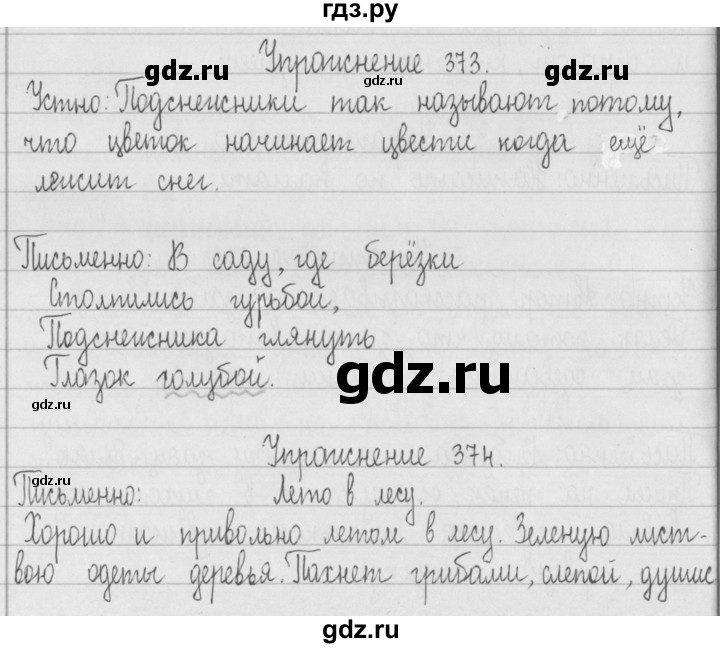 гдз.ру
Упражнение 373.
gdz.ru gdz.ru
Устно: Подснежники так называют потому,
что цветок начинает цвести когда ещё
лежит снег.
Письменно: В саду, где берёзки
Столпились гурьбой,
Подснежника глянуть
Глазок голубой.
gdz.ru
gdz.ru
Упражнение 374.
gdz.ru
Письменно: Лето в лесу.
Хорошо и привольно летом в лесу. Зеленую лист-
вою одеты деревья. Пахнет грибами, слепой, душис
gdz.ru
gdz.ru
gdz.ru